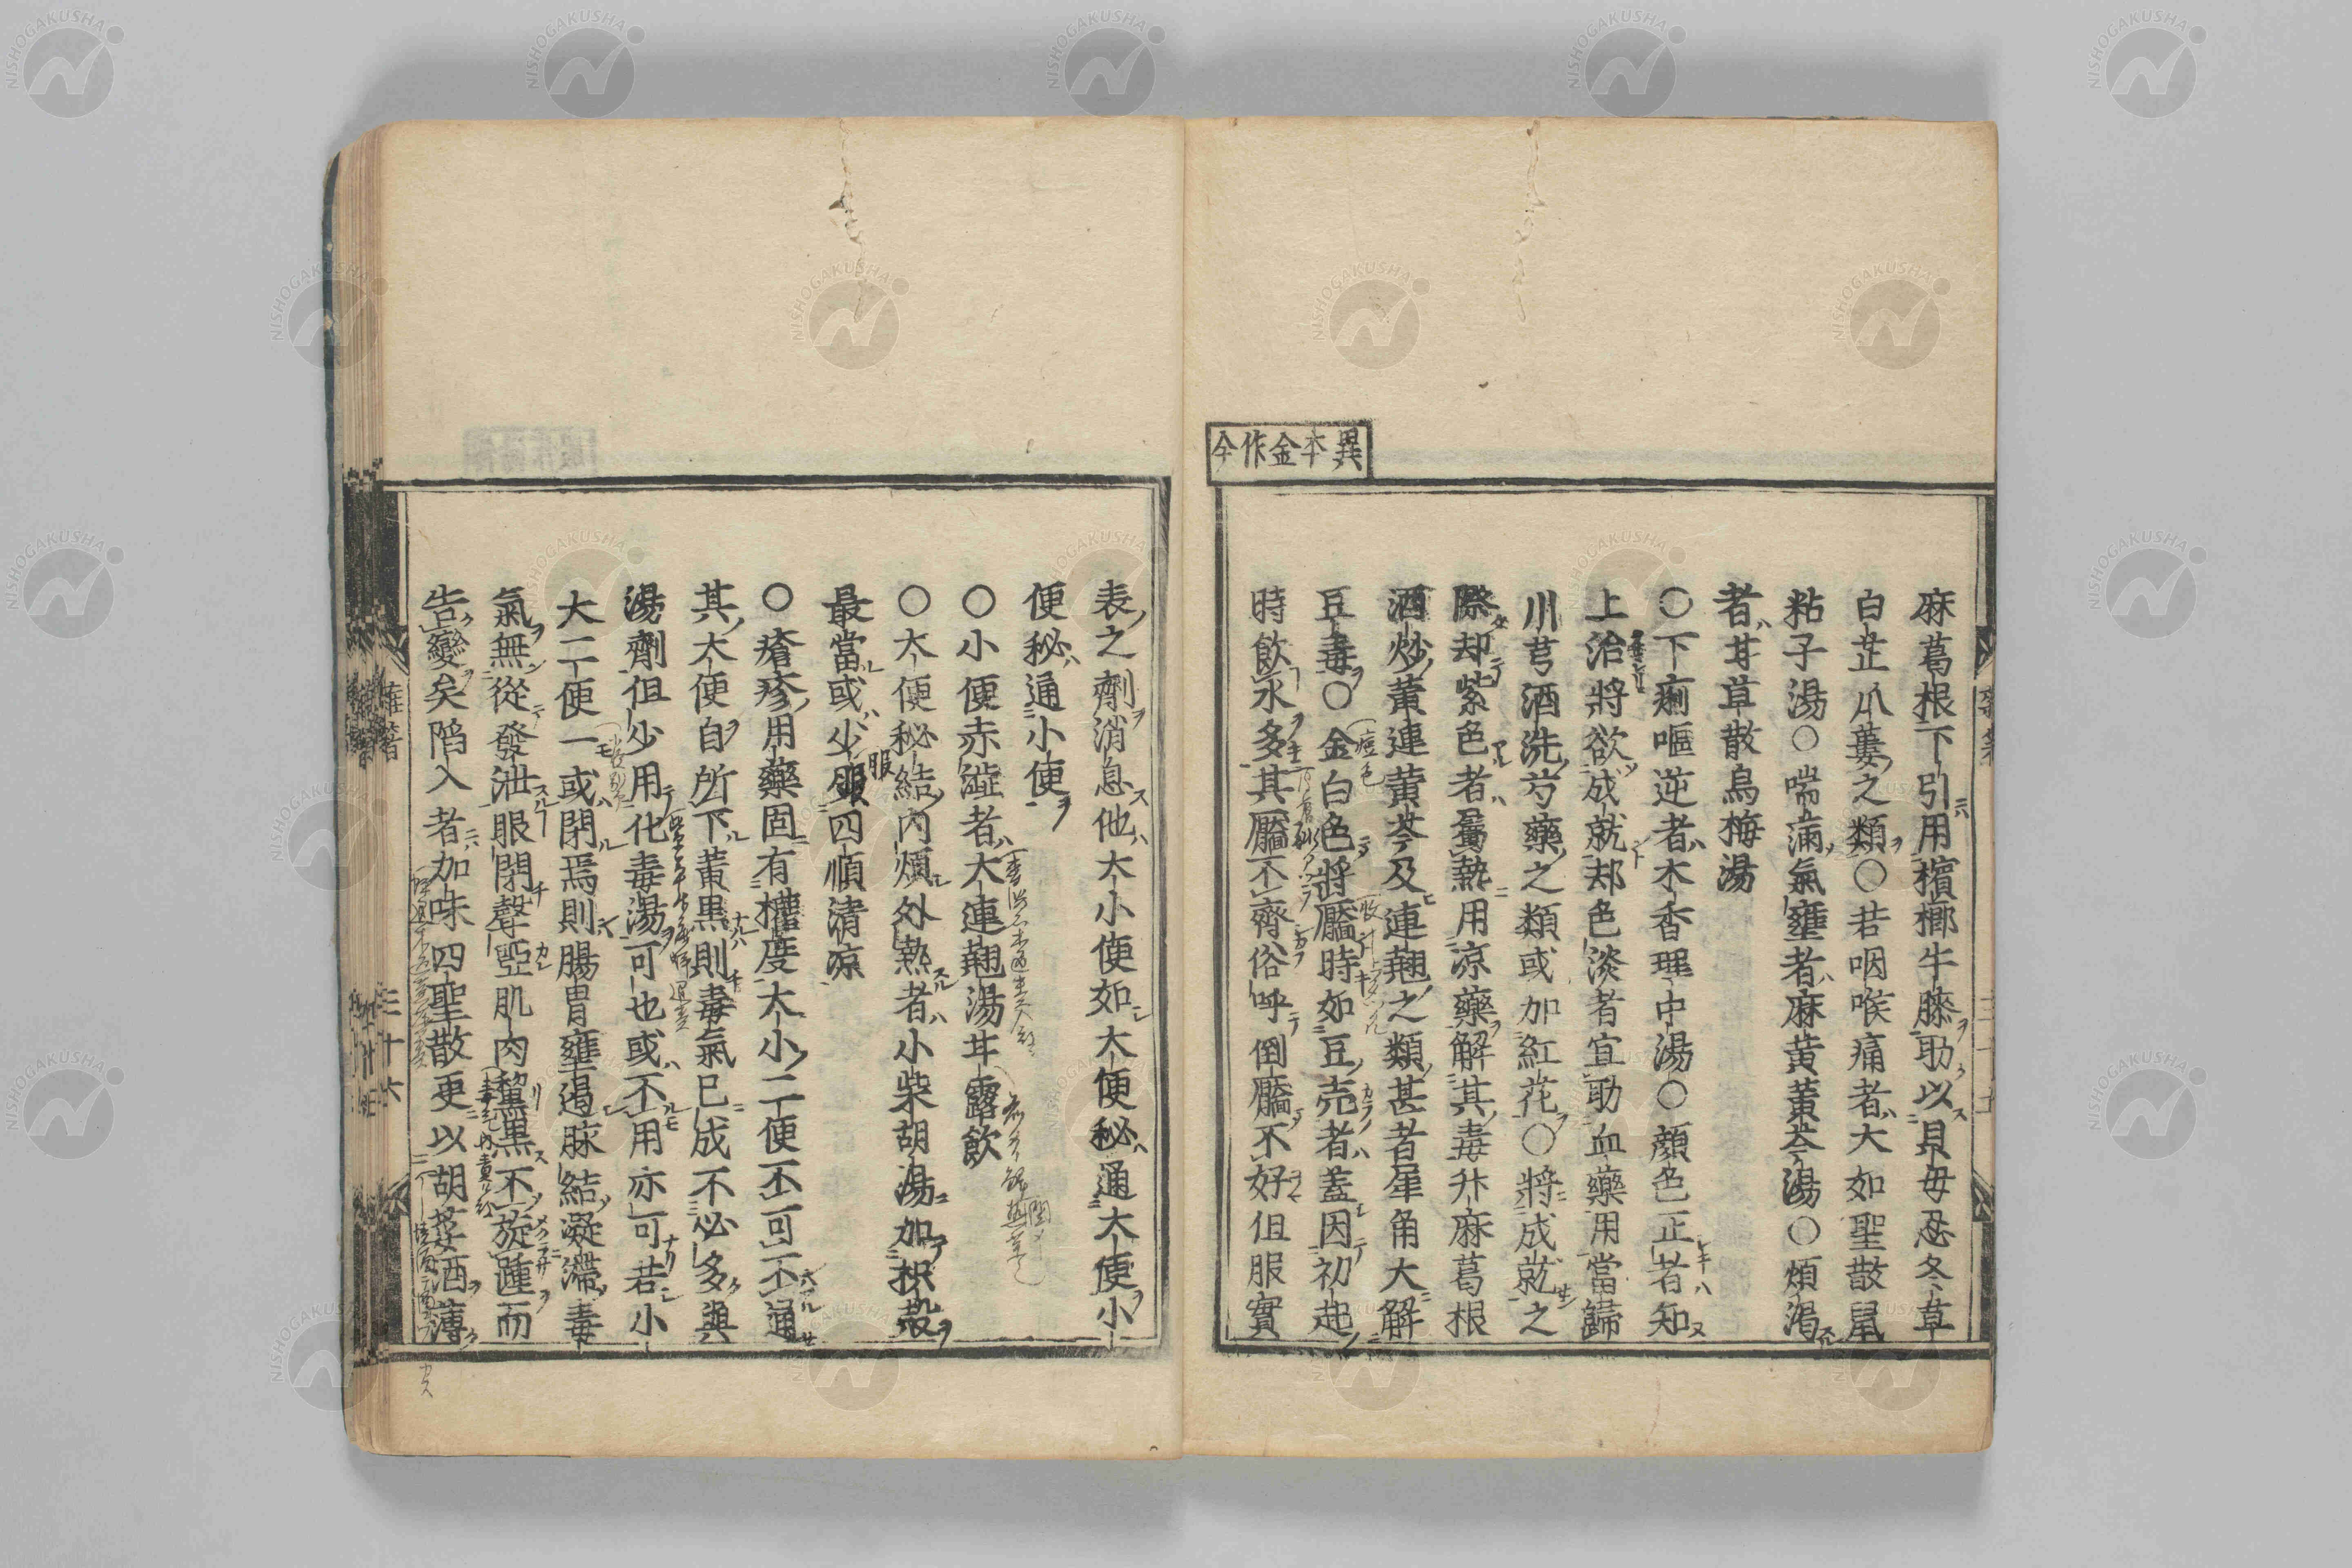 異本金作今
麻葛根下引用檳榔牛膝助以貝母忍冬草
白芷爪蔞之類○若咽喉痛者大如聖散鼠
粘子湯○喘滿氣壅者麻黄黄芩湯○煩渇
者甘草散烏梅湯
○下痢嘔逆者木香理中湯○顔色正者知
上治將欲成就却色淡者宜助血藥用當歸
川芎酒洗芍藥之類或加紅花○將成就之
際却紫色者屬熱用凉藥解其毒升麻葛根
酒炒黄連黄芩及連翹之類甚者犀角大解
豆毒○金白色將靨時如豆売者蓋因初起
時飲水多其靨不齊俗呼倒靨不好但服實
表之劑消息他大小便如大便秘通大便小
便秘通小便
○小便赤澁者大連翹湯甘露飲
○大便秘結内煩外熱者小柴胡湯加枳殻
最當或少服四順清凉
○瘡疹用藥固有權度大小二便不可不通
其大便自所下黄黒則毒氣已成不必多與
湯劑但少用化毒湯可也或不用亦可若小
大二便一或閉焉則腸胃壅遏脉結凝滯毒
氣無從發泄眼閉聲啞肌肉黧黒不旋踵而
告變矣陷入者加味四聖散更以胡荽酒薄
雜著
三十六
NISHOGAKUSHA